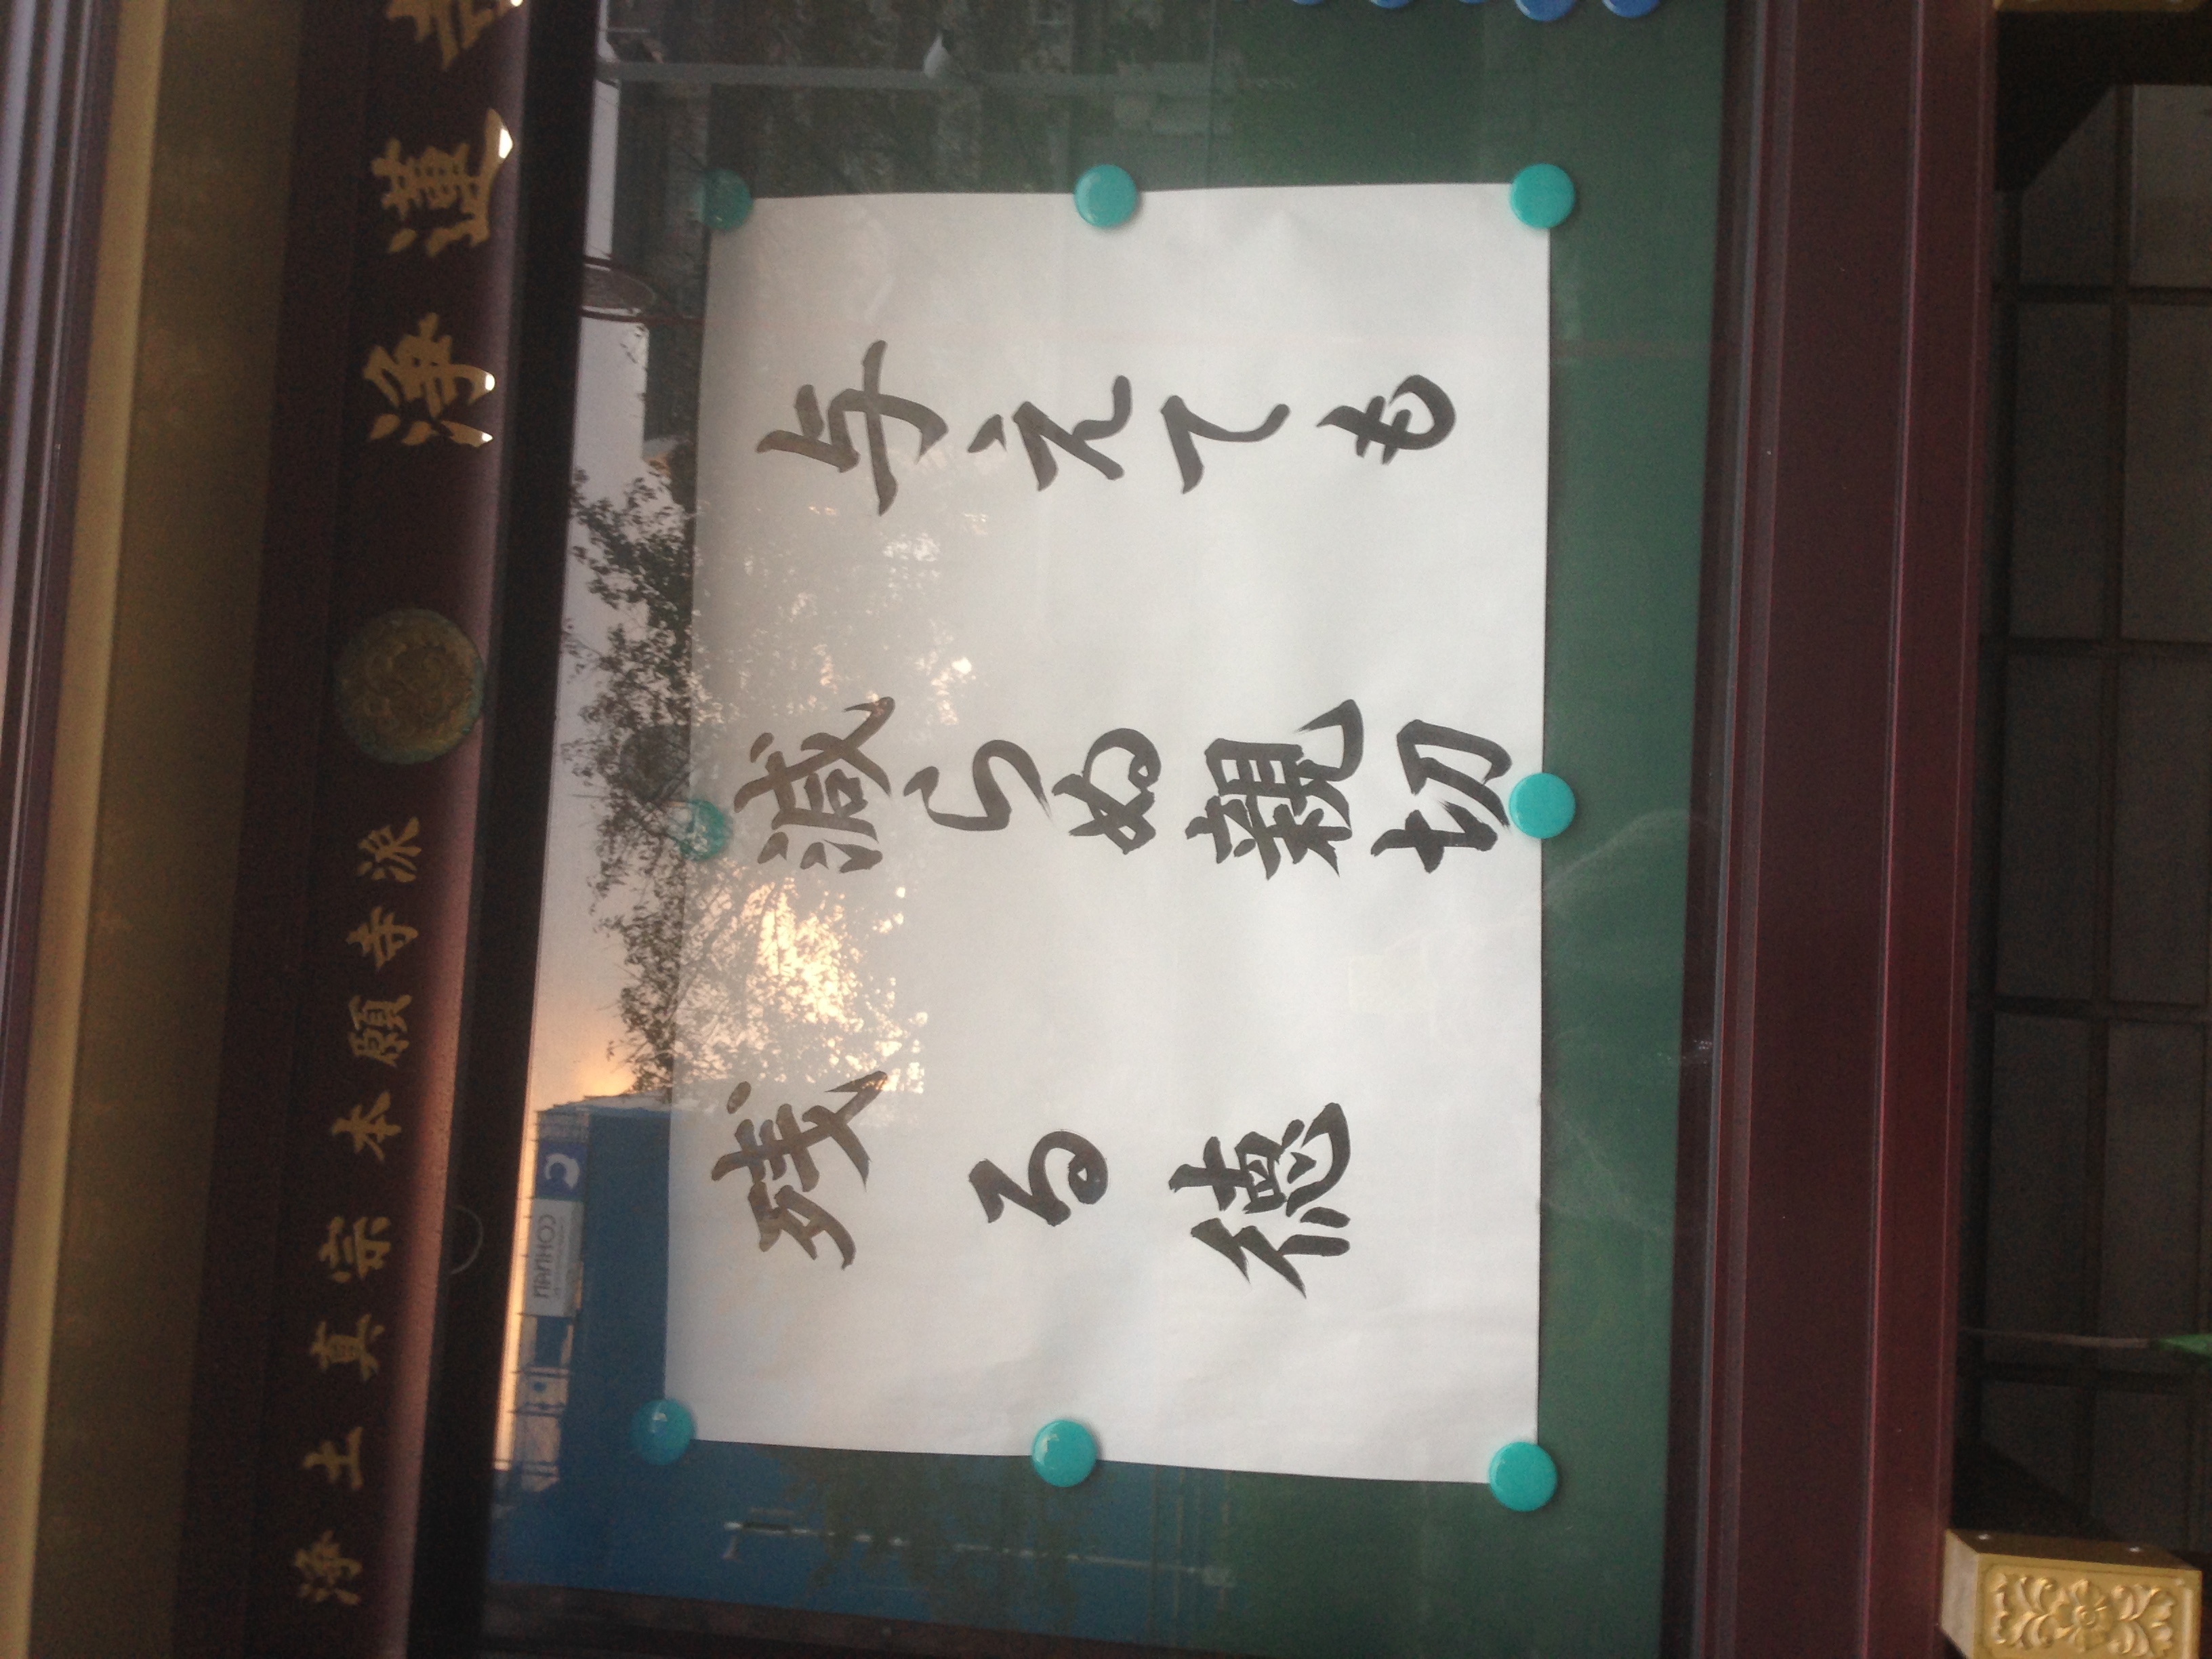 浄土真宗本願寺派
浄蓮
与えても
減らぬ親切
残る徳